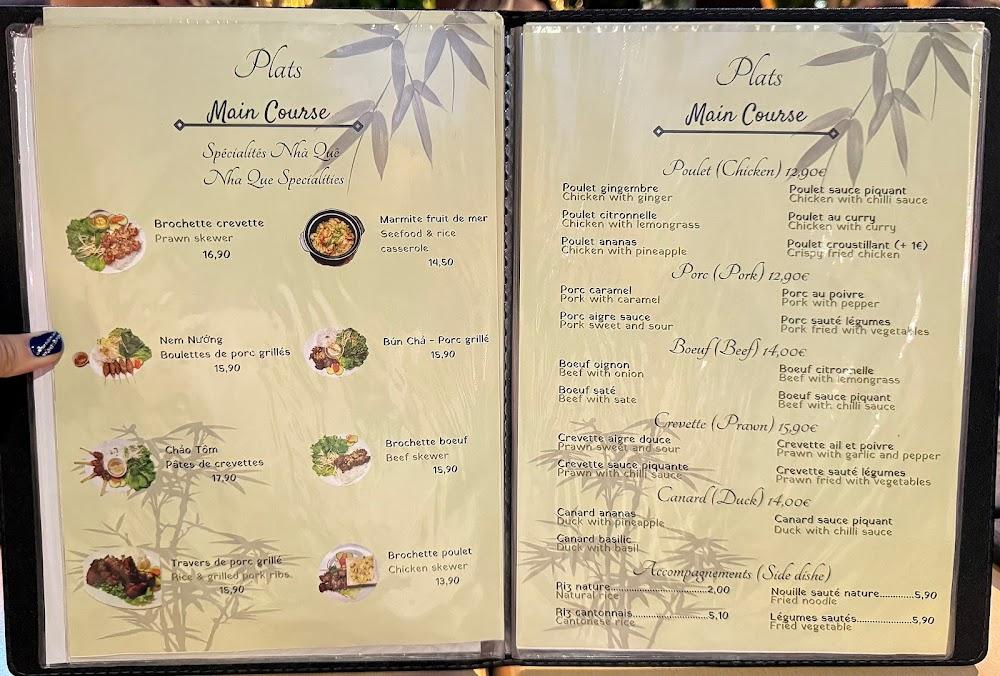 Plats
Main Course
Spécialités Nhà Quê
Nha Que Specialities
Brochette crevette
Prawn skewer
16,90
Marmite fruit de mer
Seefood & rice
casserole
14,50
Nem Nướng
Boulettes de porc grillés
15,90
Bún Chả - Porc grillé
15,90
Chảo Tôm
Pâtes de crevettes
17,90
Brochette boeuf
Beef skewer
15,90
Travers de porc grillé
Rice & grilled pork ribs
15,90
Brochette poulet
Chicken skewer
13,90
Plats
Main Course
Poulet (Chicken) 12,90€
Poulet gingembre
Chicken with ginger
Poulet sauce piquant
Chicken with chilli sauce
Poulet citronnelle
Chicken with lemongrass
Poulet au curry
Chicken with curry
Poulet ananas
Chicken with pineapple
Poulet croustillant (+ 1€)
Crispy fried chicken
Porc (Pork) 12,90€
Porc caramel
Pork with caramel
Porc au poivre
Pork with pepper
Porc aigre sauce
Pork sweet and sour
Porc sauté légumes
Pork fried with vegetables
Boeuf (Beef) 14,00€
Boeuf oignon
Beef with onion
Boeuf citronnelle
Beef with lemongrass
Boeuf saté
Beef with sate
Boeuf sauce piquant
Beef with chilli sauce
Crevette (Prawn) 15,90€
Crevette aigre douce
Prawn sweet and sour
Crevette ail et poivre
Prawn with garlic and pepper
Crevette sauce piquante
Prawn with chilli sauce
Crevette sauté légumes
Prawn fried with vegetables
Canard (Duck) 14,00€
Canard ananas
Duck with pineapple
Canard sauce piquant
Duck with chilli sauce
Canard basilic
Duck with basil
Accompagnements (Side dishe)
Riz nature...................2,00
Natural rice
Nouille sauté nature............5,90
Fried noodle
Riz cantonnais...............5,10
Cantonese rice
Légumes sautés....................5,90
Fried vegetable